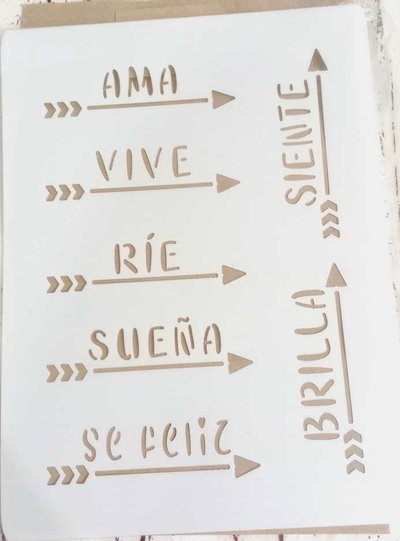 AMA
VIVE
RÍE
SUEÑA
Se Feliz
SIENTE
BRILLA